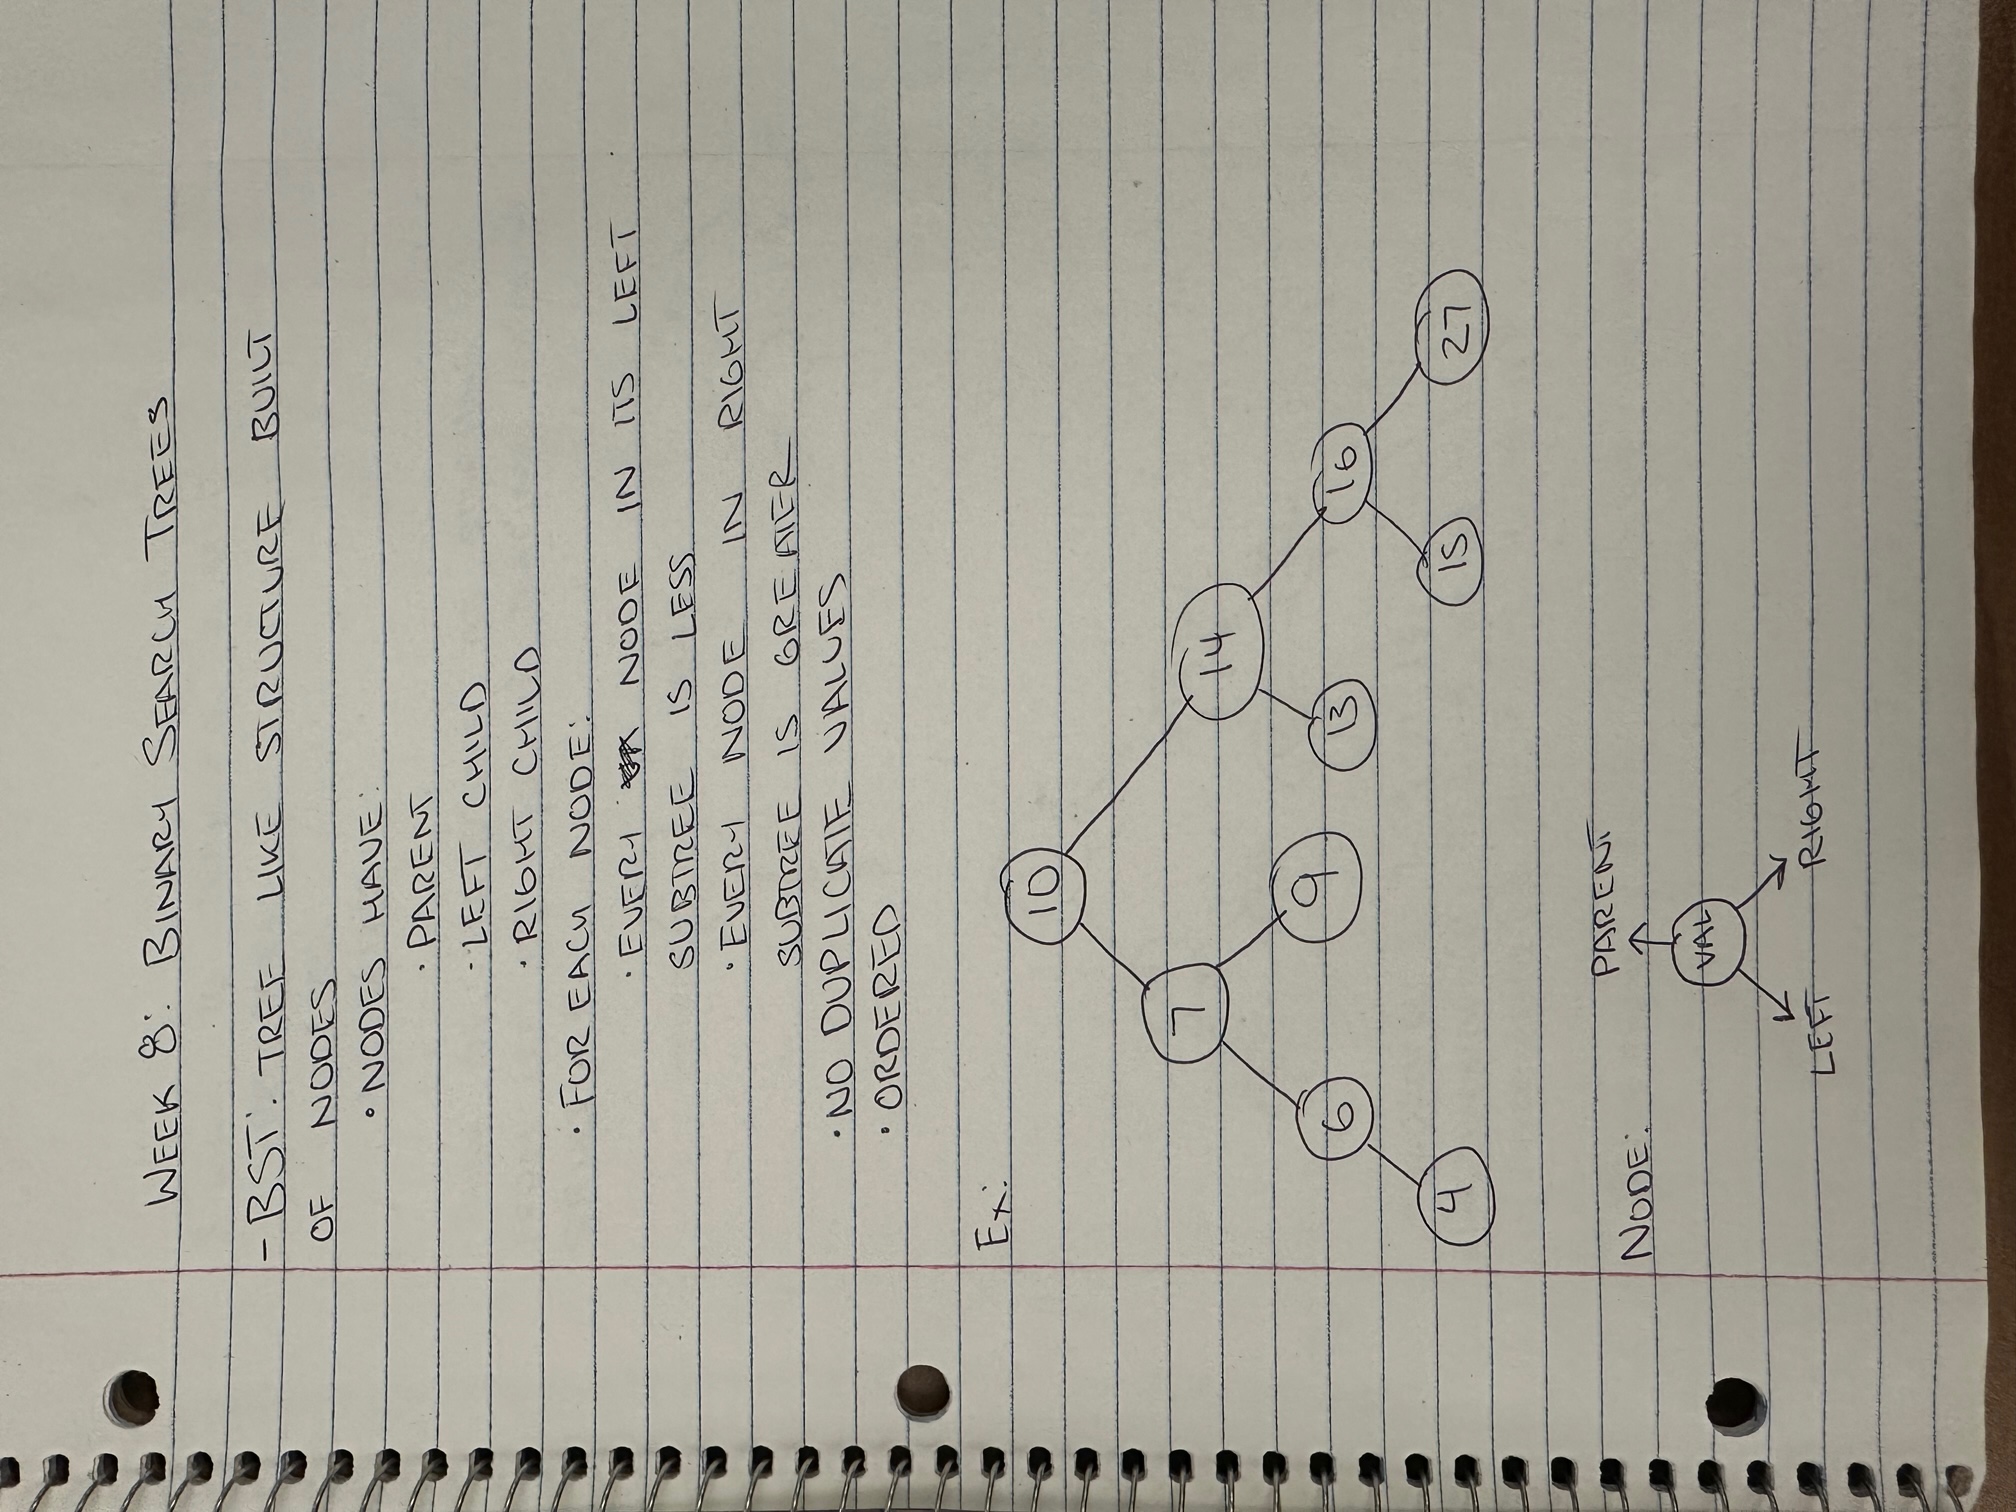 WEEK 8: BINARY SEARCH TREES
- BST: TREE LIKE STRUCTURE BUILT
OF NODES
• NODES HAVE:
· PARENT
· LEFT CHILD
· RIGHT CHILD
· FOR EACH NODE:
· EVERY NODE IN ITS LEFT
SUBTREE IS LESS
· EVERY NODE IN RIGHT
SUBTREE IS GREATER
· NO DUPLICATE VALUES
· ORDERED
Ex:
10
7
14
6
9
13
16
4
15
27
NODE:
PARENT
VAL
LEFT
RIGHT